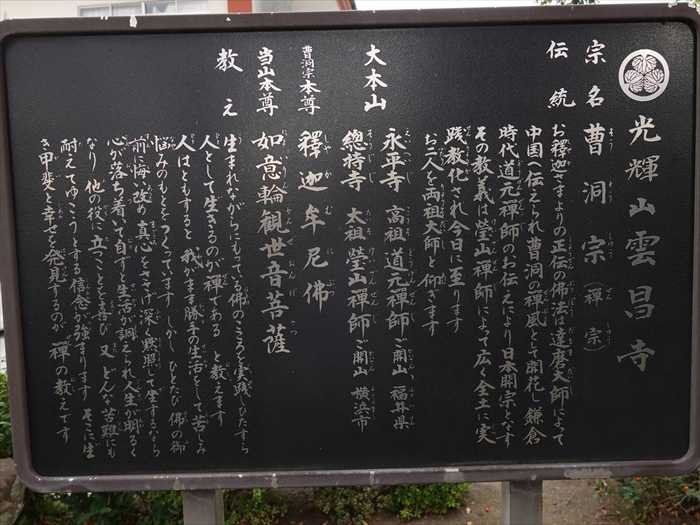 光輝山雲昌寺
宗名 曹洞宗（禅宗）
伝統 お釋迦さまよりの正伝の佛法は達磨大師によって
中国へ伝えられ曹洞の禅風として開花し鎌倉
時代道元禅師のお伝えにより日本開宗となす
その教義は瑩山禅師によって広く全土に実
践教化され今日に至ります
お二人を両祖大師と仰ぎます
大本山 永平寺 高祖 道元禅師 ご開山 福井県
總持寺 太祖 瑩山禅師 ご開山 横浜市
曹洞宗本尊 釋迦牟尼佛
当山本尊 如意輪観世音菩薩
教え 生まれながらにもっている佛のこころを実践しひたすら
人として生きるのが禅である と教えます
人はともすると 我がまま勝手の生活をして苦しみ
悩みのもとをつくっています しかし ひとたび 佛の御
前に悔い改め 真心をささげ 深く懺悔して坐するなら
心が落ち着いて自ずと生活が調えられ人生が明るく
なり 他の役に立つことを喜び 又 どんな苦難にも
耐えてゆこうとする信念が強まります そこに生
き甲斐と幸せを発見するのが 禅の教えです